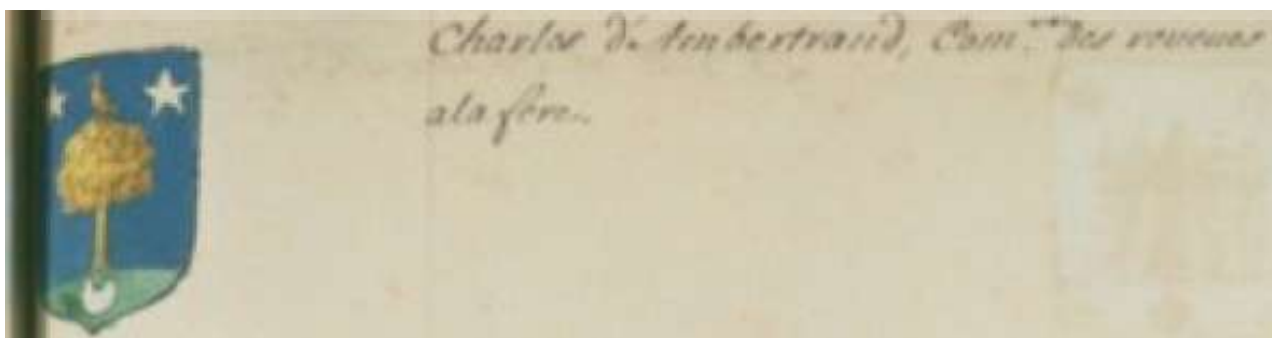 Charles d'Aubertrand, Com.re des reveues
ala fere.